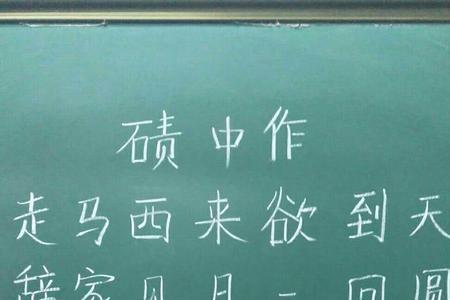 碛中作
走马西来欲到天
辞家见月一回圆